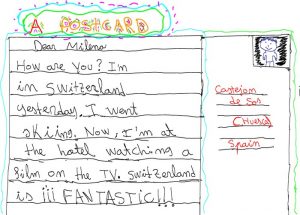 A POSTCARD
Dear Milena
How are you? I'm
in switzerland
yesterday. I went
skiing. Now, I'm at
the hotel watching a
film on the TV. switzerland
is ¡¡¡ FANTASTIC!!!
Castejon
de Sos
(Huesca)
Spain